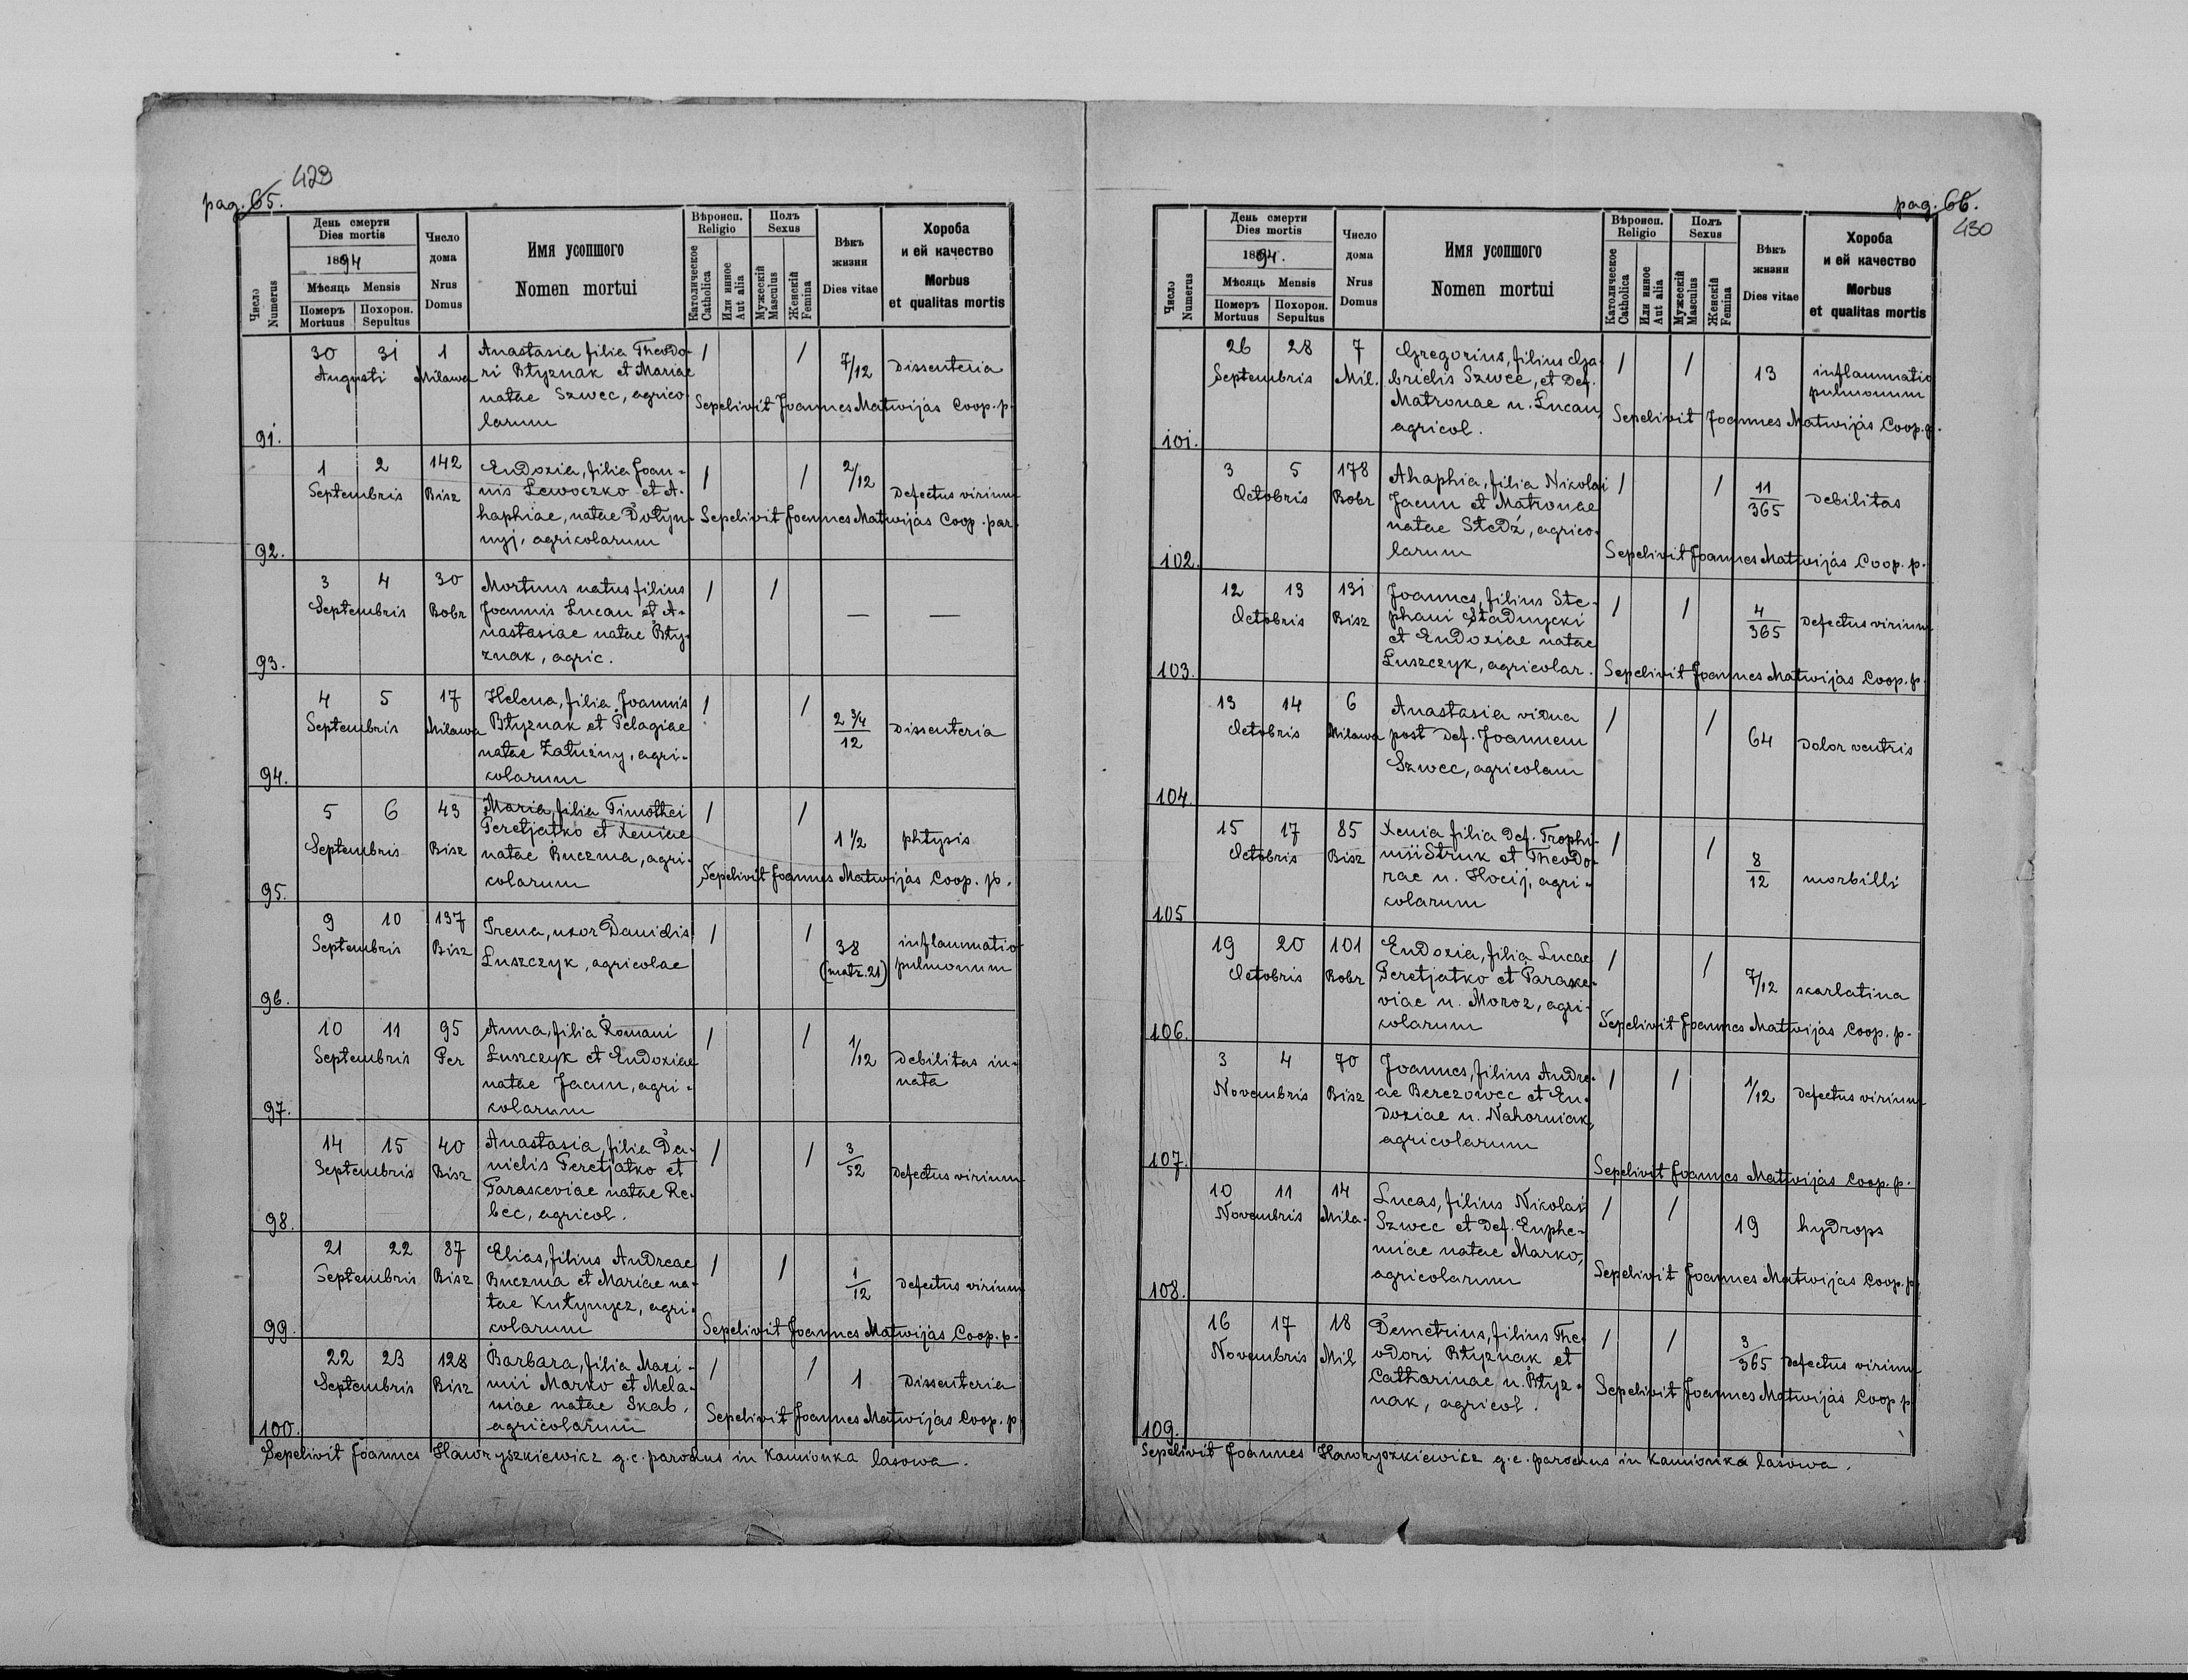 429
pag. 65.
Число Numerus
День смерти
Dies mortis
1894
Мѣсяць Mensis
Померъ Mortuus
Похорон. Sepultus
Число дома
Nrus Domus
Имя усопшого
Nomen mortui
Вѣроисп. Religio
Католическое Catholica
Или инное Aut alia
Полъ Sexus
Мужескій Masculus
Женскій Femina
Вѣкъ жизни
Dies vitae
Хороба
и ей качество
Morbus
et qualitas mortis
91. 30 31 Augusti 1 Milawa
Anastasia filia Theodo-
ri Btyznak et Mariae
natae Szwec, agrico-
larum
/ / 7/12 Dissenteria
Sepelivit Joannes Matwijas Coop. p.
92. 1 2 Septembris 142 Bisz
Eudoxia, filia Joan-
nis Lewoczko et A-
haphiae, natae Dotyn-
nyj, agricolarum
/ / 2/12 Defectus virium
Sepelivit Joannes Matwijas Coop. par.
93. 3 4 Septembris 30 Bobr
Mortuus natus filius
Joannis Lucan et A-
nastasiae natae Bty-
znak, agric.
/ / — —
94. 4 5 Septembris 17 Milawa
Helena, filia Joannis
Btyznak et Pelagiae
natae Zatuzny, agri-
colarum
/ / 2 3/4 / 12 Dissenteria
95. 5 6 Septembris 43 Bisz
Maria, filia Timothei
Peretjatko et Xeniae
natae Buczma, agri-
colarum
/ / 1 1/2 phtysis
Sepelivit Joannes Matwijas Coop. p.
96. 9 10 Septembris 137 Bisz
Irena, uxor Danielis
Luszczyk, agricolae
/ / 38 (matr. 21) inflammatio
pulmonum
97. 10 11 Septembris 95 Per
Anna, filia Romani
Luszczyk et Eudoxiae
natae Jacun, agri-
colarum
/ / 1/12 Debilitas in-
nata
98. 14 15 Septembris 40 Bisz
Anastasia, filia Da-
nielis Peretjatko et
Paraskeviae natae Re-
bec, agricol.
/ / 3/52 Defectus virium
99. 21 22 Septembris 87 Bisz
Elias, filius Andreae
Buczma et Mariae na-
tae Kutynycz, agri-
colarum
/ / 1/12 Defectus virium
Sepelivit Joannes Matwijas Coop. p.
100. 22 23 Septembris 128 Bisz
Barbara, filia Maxi-
mii Marko et Mela-
niae natae Skab,
agricolarum
/ / 1 Dissenteria
Sepelivit Joannes Matwijas Coop. p.
Sepelivit Joannes Hawryszkiewicz g. c. parochus in Kamionka lasowa.
pag. 66.
430
Число Numerus
День смерти
Dies mortis
1894.
Мѣсяць Mensis
Померъ Mortuus
Похорон. Sepultus
Число дома
Nrus Domus
Имя усопшого
Nomen mortui
Вѣроисп. Religio
Католическое Catholica
Или инное Aut alia
Полъ Sexus
Мужескій Masculus
Женскій Femina
Вѣкъ жизни
Dies vitae
Хороба
и ей качество
Morbus
et qualitas mortis
101. 26 28 Septembris 7 Mil.
Gregorius, filius Ga-
brielis Szwec, et Def.
Matronae n. Lucan,
agricol.
/ / 13 inflammatio
pulmonum
Sepelivit Joannes Matwijas Coop. p.
102. 3 5 Octobris 178 Bobr
Ahaphia, filia Nikolai
Jacun et Matronae
natae Stedź, agrico-
larum
/ / 11/365 Debilitas
Sepelivit Joannes Matwijas Coop. p.
103. 12 13 Octobris 131 Bisz
Joannes, filius Ste-
phani Stadnycki
et Eudoxiae natae
Luszczyk, agricolar.
/ / 4/365 Defectus virium
Sepelivit Joannes Matwijas Coop. p.
104. 13 14 Octobris 6 Milawa
Anastasia vidua
post def. Joannem
Szwec, agricolam
/ / 64 Dolor ventris
105 15 17 Octobris 85 Bisz
Xenia filia Def. Trophi-
mii Struk et Theodo-
rae n. Hocij, agri-
colarum
/ / 8/12 morbilli
106. 19 20 Octobris 101 Bobr
Eudoxia, filia Lucae
Peretjatko et Paraske-
viae n. Moroz, agri-
colarum
/ / 7/12 skarlatina
Sepelivit Joannes Matwijas Coop. p.
107. 3 4 Novembris 70 Bisz
Joannes, filius Andre-
ae Berezowec et Eu-
doxiae n. Nahorniak,
agricolarum
/ / 1/12 Defectus virium
Sepelivit Joannes Matwijas Coop. p.
108. 10 11 Novembris 14 Mila.
Lucas, filius Nikolai
Szwec et Def. Euphe-
miae natae Marko,
agricolarum
/ / 19 hydrops
Sepelivit Joannes Matwijas Coop. p.
109. 16 17 Novembris 18 Mil
Demetrius, filius The-
odori Btyznak et
Catharinae n. Btyz-
nak, agricol.
/ / 3/365 Defectus virium
Sepelivit Joannes Matwijas Coop p.
Sepelivit Joannes Hawryszkiewicz g. c. parochus in Kamionka lasowa.